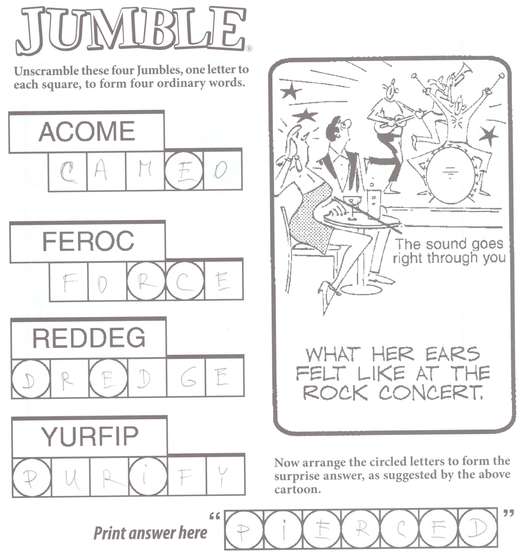 JUMBLE®
Unscramble these four Jumbles, one letter to
each square, to form four ordinary words.
ACOME
CAMEO
FEROC
FORCE
REDDEG
DREDGE
YURFIP
PURIFY
The sound goes
right through you
WHAT HER EARS
FELT LIKE AT THE
ROCK CONCERT.
Now arrange the circled letters to form the
surprise answer, as suggested by the above
cartoon.
Print answer here “PiERCED”